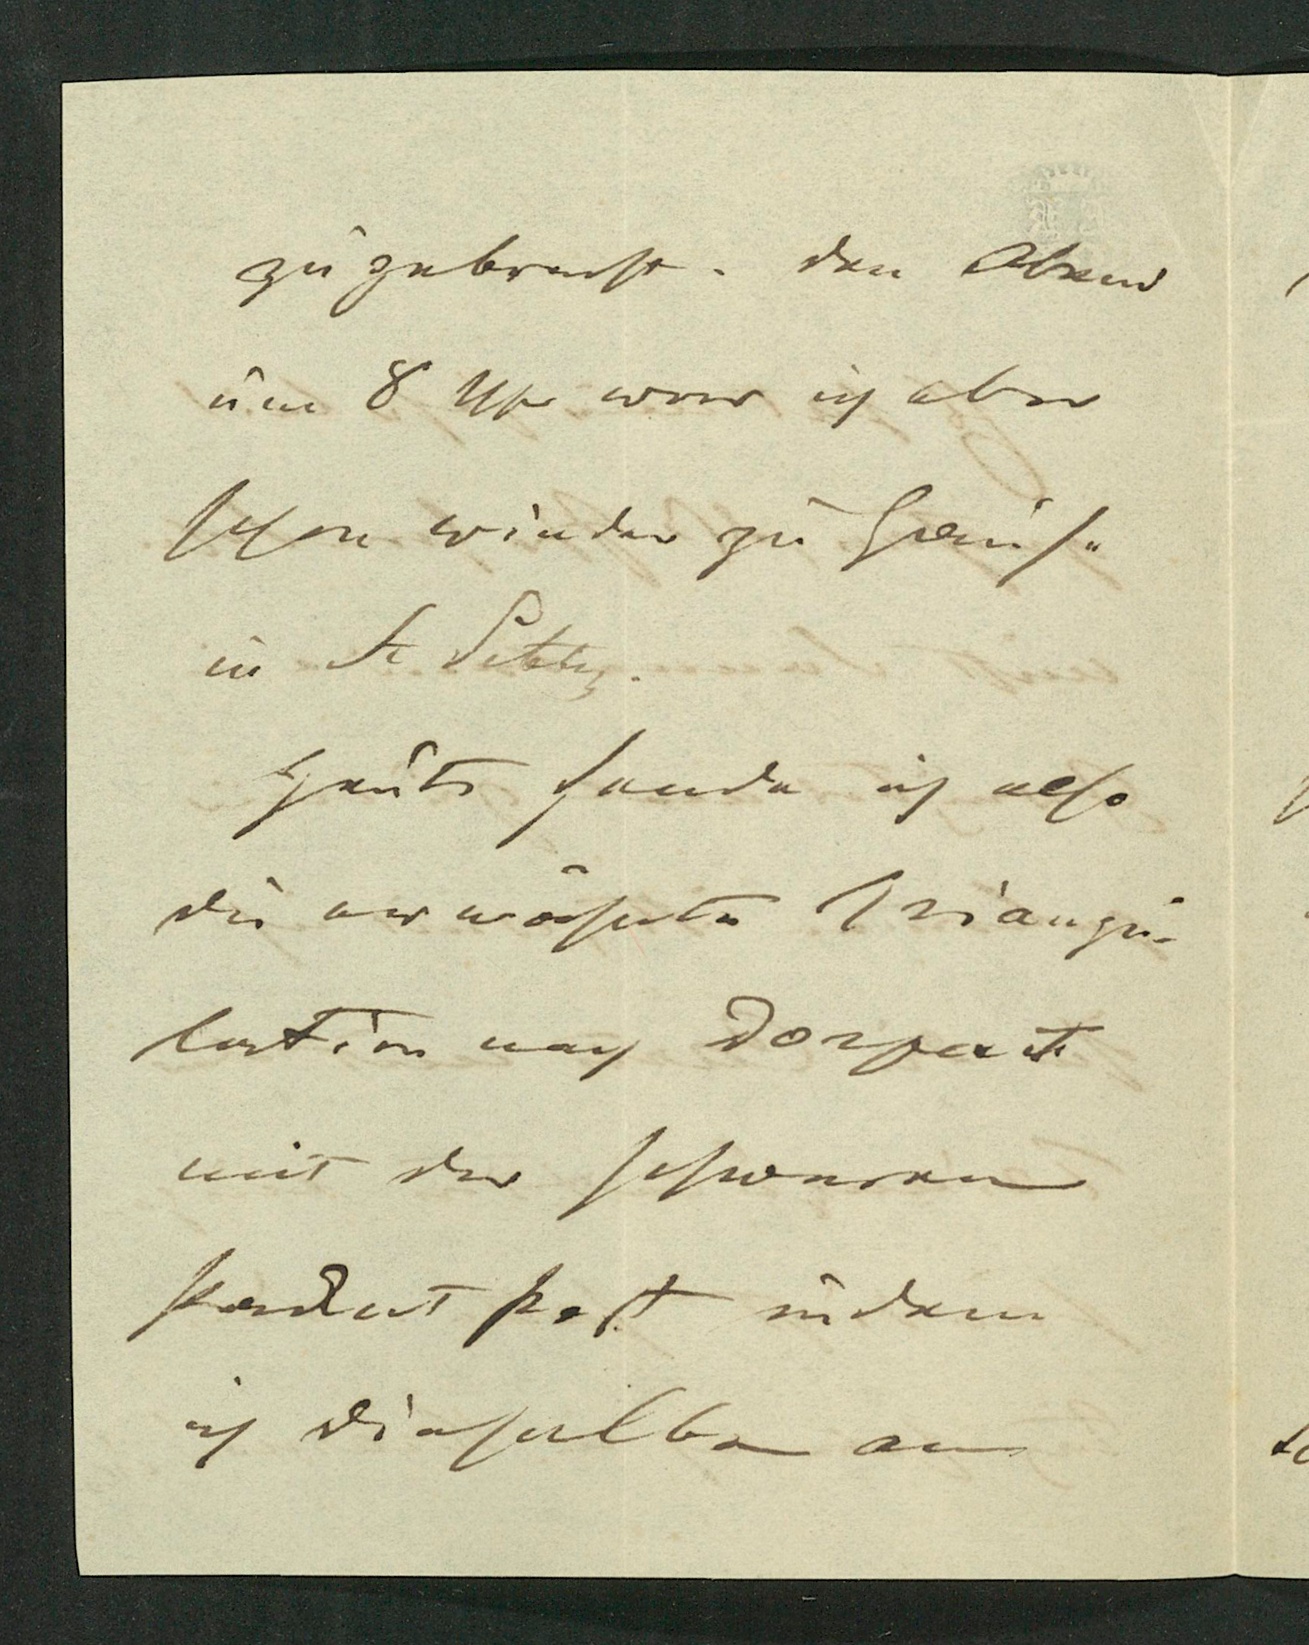 zugebracht. den Abend
um 8 Uhr war ich aber
schon wieder zu Hause
in St Petbg.
Heute sende ich also
die erwähnte Triangu-
lation nach Dorpat
mit der schweren
post indem
ich dieselbe an